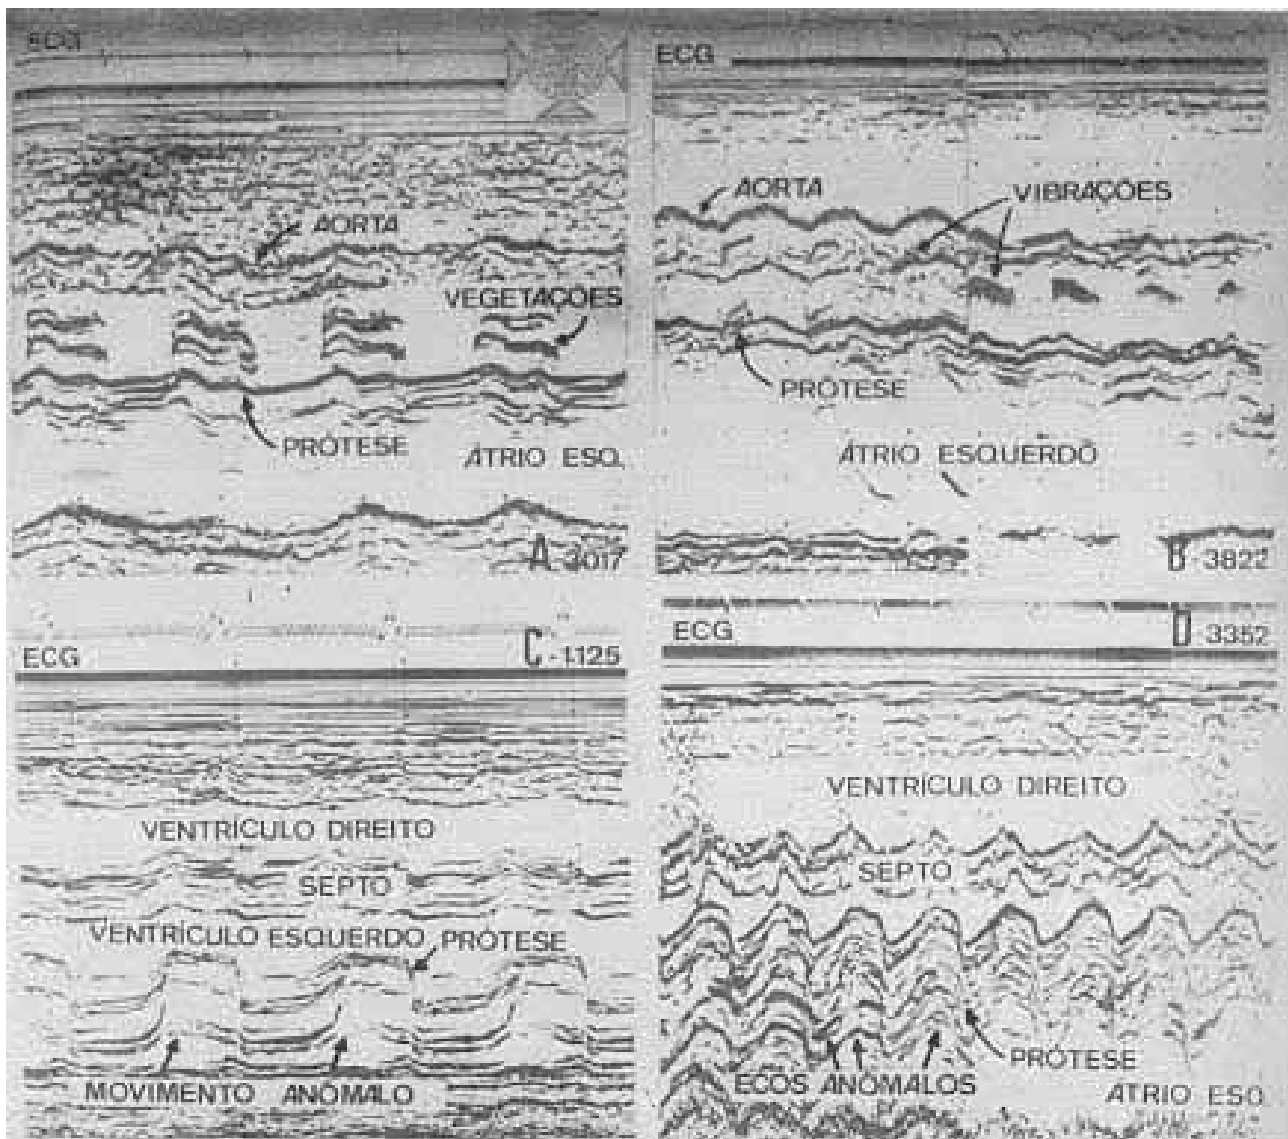 ECG
AORTA
VEGETAÇÕES
PRÓTESE
ÁTRIO ESQ.
A-3017
ECG
AORTA
VIBRAÇÕES
PRÓTESE
ÁTRIO ESQUERDO
B-3822
C-1125
ECG
VENTRÍCULO DIREITO
SEPTO
VENTRÍCULO ESQUERDO PRÓTESE
MOVIMENTO ANÓMALO
D-3352
ECG
VENTRÍCULO DIREITO
SEPTO
PRÓTESE
ECOS ANÓMALOS
ÁTRIO ESQ